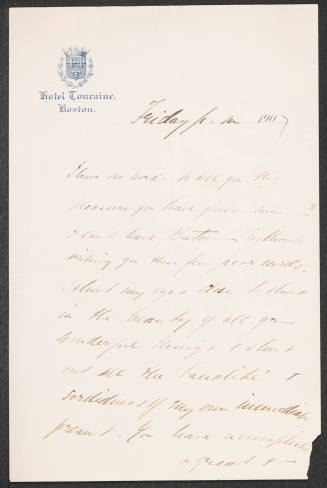 Hotel Touraine.
Boston.
Friday p. m 1907
I have no words to tell you the
pleasure you have given me
I can't leave Boston without
writing you these few poor words.
I shut my eyes close to shut
in the beauty of all your
wonderful things & shut
out all the banalité &
sordidness of my own immediate
present. You have accomplished
a great &